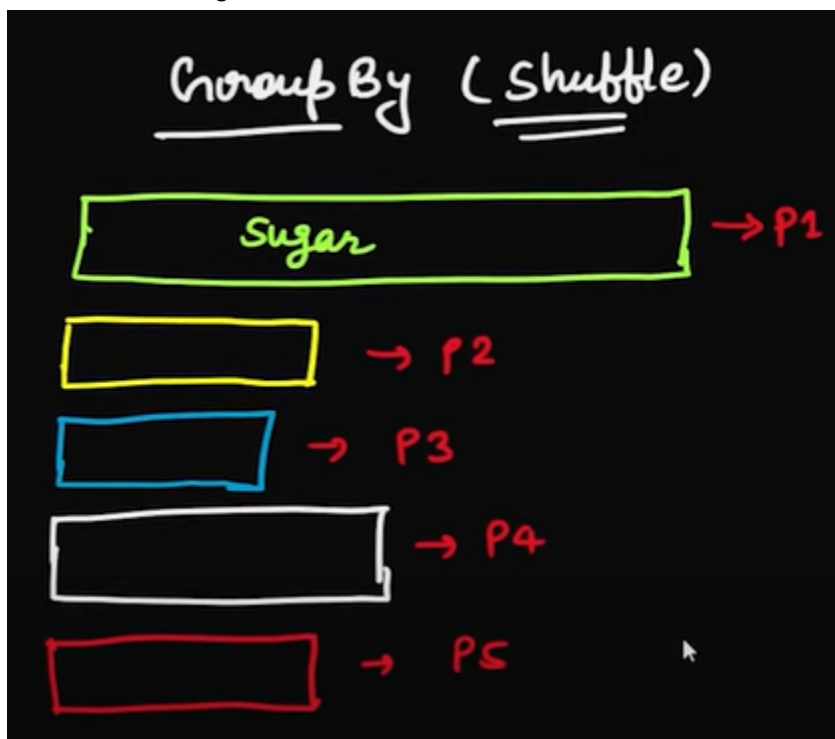 GroupBy (Shuffle)
Sugar → P1
→ P2
→ P3
→ P4
→ P5